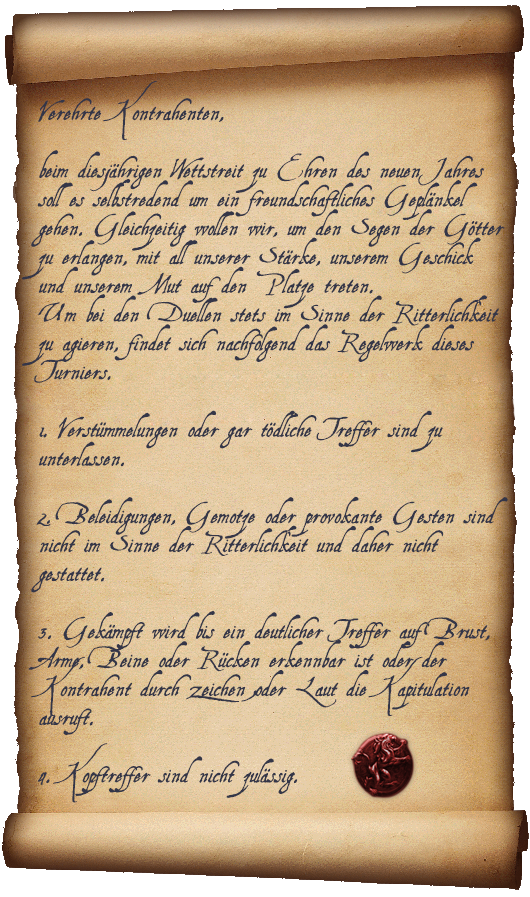 Verehrte Kontrahenten,
beim diesjährigen Wettstreit zu Ehren des neuen Jahres
soll es selbstredend um ein freundschaftliches Geplänkel
gehen. Gleichzeitig wollen wir, um den Segen der Götter
zu erlangen, mit all unserer Stärke, unserem Geschick
und unserem Mut auf den Platze treten.
Um bei den Duellen stets im Sinne der Ritterlichkeit
zu agieren, findet sich nachfolgend das Regelwerk dieses
Turniers.
1. Verstümmelungen oder gar tödliche Treffer sind zu
unterlassen.
2. Beleidigungen, Gemotze oder provokante Gesten sind
nicht im Sinne der Ritterlichkeit und daher nicht
gestattet.
3. Gekämpft wird bis ein deutlicher Treffer auf Brust,
Arme, Beine oder Rücken erkennbar ist oder der
Kontrahent durch zeichen oder Laut die Kapitulation
ausruft.
4. Kopftreffer sind nicht zulässig.